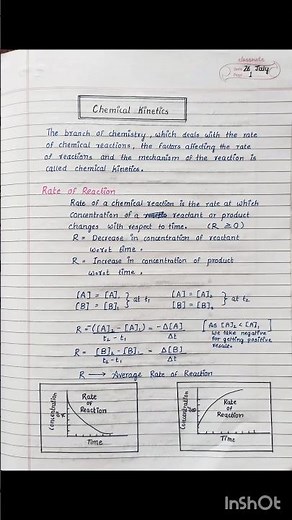 classmate
Date 26 July
Page 1
Chemical Kinetics
The branch of chemistry, which deals with the rate
of chemical reactions, the factors affecting the rate
of reactions and the mechanism of the reaction is
called chemical kinetics.
Rate of Reaction
Rate of a chemical reaction is the rate at which
concentration of a reactant or product
changes with respect to time. (R ≥ 0)
R = Decrease in concentration of reactant
w.r.t time.
R = Increase in concentration of product
w.r.t time.
[A] = [A]₁ } at t₁ [A] = [A]₂ } at t₂
[B] = [B]₁ [B] = [B]₂
R = -([A]₂ - [A]₁) / t₂ - t₁ = -Δ[A] / Δt [As [A]₂ < [A]₁
we take negative
for getting positive
result.
R = [B]₂ - [B]₁ / t₂ - t₁ = Δ[B] / Δt
R → Average Rate of Reaction
Concentration of R
Rate of Reaction
Time
Concentration
Rate of Reaction
Time
InShOt